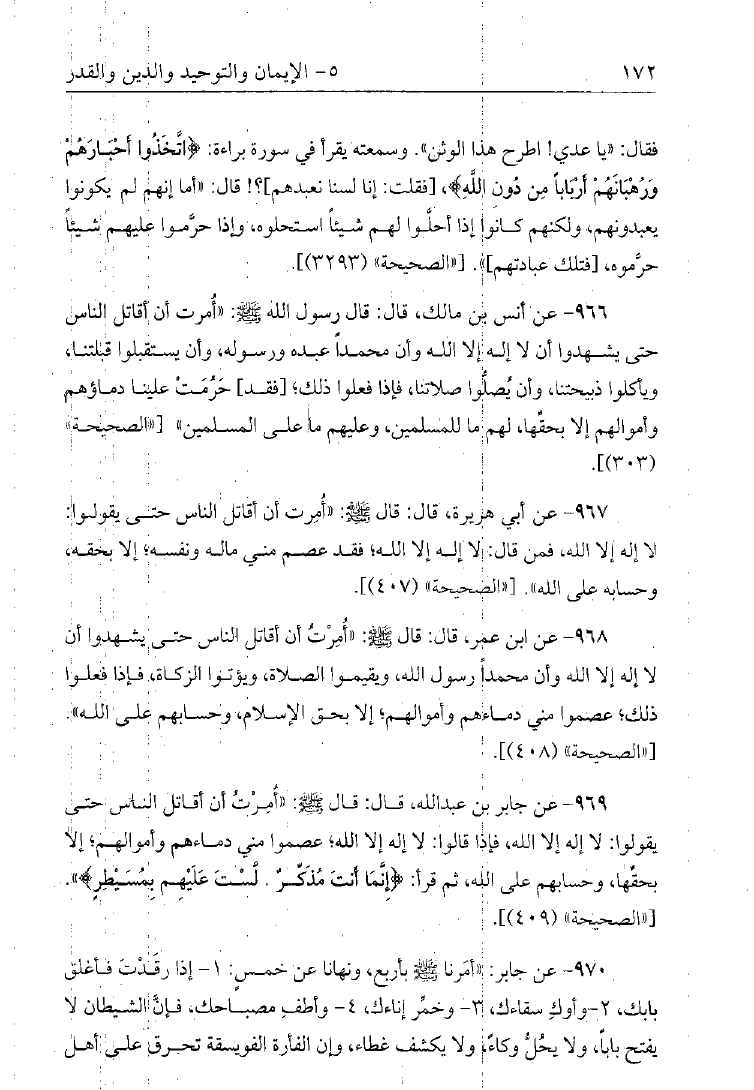 ١٧٢
٥- الإيمان والتوحيد والدين والقدر
فقال: «يا عدي! اطرح هذا الوثن». وسمعته يقرأ في سورة براءة: ﴿اتَّخَذُوا أَحْبَارَهُمْ
وَرُهْبَانَهُمْ أَرْبَاباً مِن دُونِ اللَّهِ﴾، [فقلت: إنا لسنا نعبدهم]؟! قال: «أما إنهم لم يكونوا
يعبدونهم، ولكنهم كانوا إذا أحلُّوا لهم شيئاً استحلوه، وإذا حرَّموا عليهم شيئاً
حرَّموه، [فتلك عبادتهم]». [«الصحيحة» (٣٢٩٣)].
٩٦٦- عن أنس بن مالك، قال: قال رسول الله ﷺ: «أُمرت أن أقاتل الناس
حتى يشهدوا أن لا إله إلا الله وأن محمداً عبده ورسوله، وأن يستقبلوا قبلتنا،
ويأكلوا ذبيحتنا، وأن يُصلُّوا صلاتنا، فإذا فعلوا ذلك؛ [فقد] حَرُمَتْ علينا دماؤهم
وأموالهم إلا بحقِّها، لهم ما للمسلمين، وعليهم ما على المسلمين» [«الصحيحة»
(٣٠٣)].
٩٦٧- عن أبي هريرة، قال: قال ﷺ: «أُمِرت أن أقاتل الناس حتى يقولوا:
لا إله إلا الله، فمن قال: لا إله إلا الله؛ فقد عصم مني ماله ونفسه؛ إلا بحقه،
وحسابه على الله». [«الصحيحة» (٤٠٧)].
٩٦٨- عن ابن عمر، قال: قال ﷺ: «أُمِرْتُ أن أقاتل الناس حتى يشهدوا أن
لا إله إلا الله وأن محمداً رسول الله، ويقيموا الصلاة، ويؤتوا الزكاة، فإذا فعلوا
ذلك؛ عصموا مني دماءهم وأموالهم؛ إلا بحق الإسلام، وحسابهم على الله».
[«الصحيحة» (٤٠٨)].
٩٦٩- عن جابر بن عبدالله، قال: قال ﷺ: «أُمِرْتُ أن أقاتل الناس حتى
يقولوا: لا إله إلا الله، فإذا قالوا: لا إله إلا الله؛ عصموا مني دماءهم وأموالهم؛ إلا
بحقِّها، وحسابهم على الله، ثم قرأ: ﴿إِنَّمَا أَنتَ مُذَكِّرٌ . لَّسْتَ عَلَيْهِم بِمُسَيْطِرٍ﴾».
[«الصحيحة» (٤٠٩)].
٩٧٠- عن جابر: «أمَرنا ﷺ بأربع، ونهانا عن خمسٍ: ١- إذا رقَدْتَ فأغلق
بابك، ٢- وأوكِ سقاءك، ٣- وخمِّر إناءك، ٤- وأطفِ مصباحك، فإنَّ الشيطان لا
يفتح باباً، ولا يحُلُّ وكاءً، ولا يكشف غطاء، وإن الفأرة الفويسقة تحرق على أهل